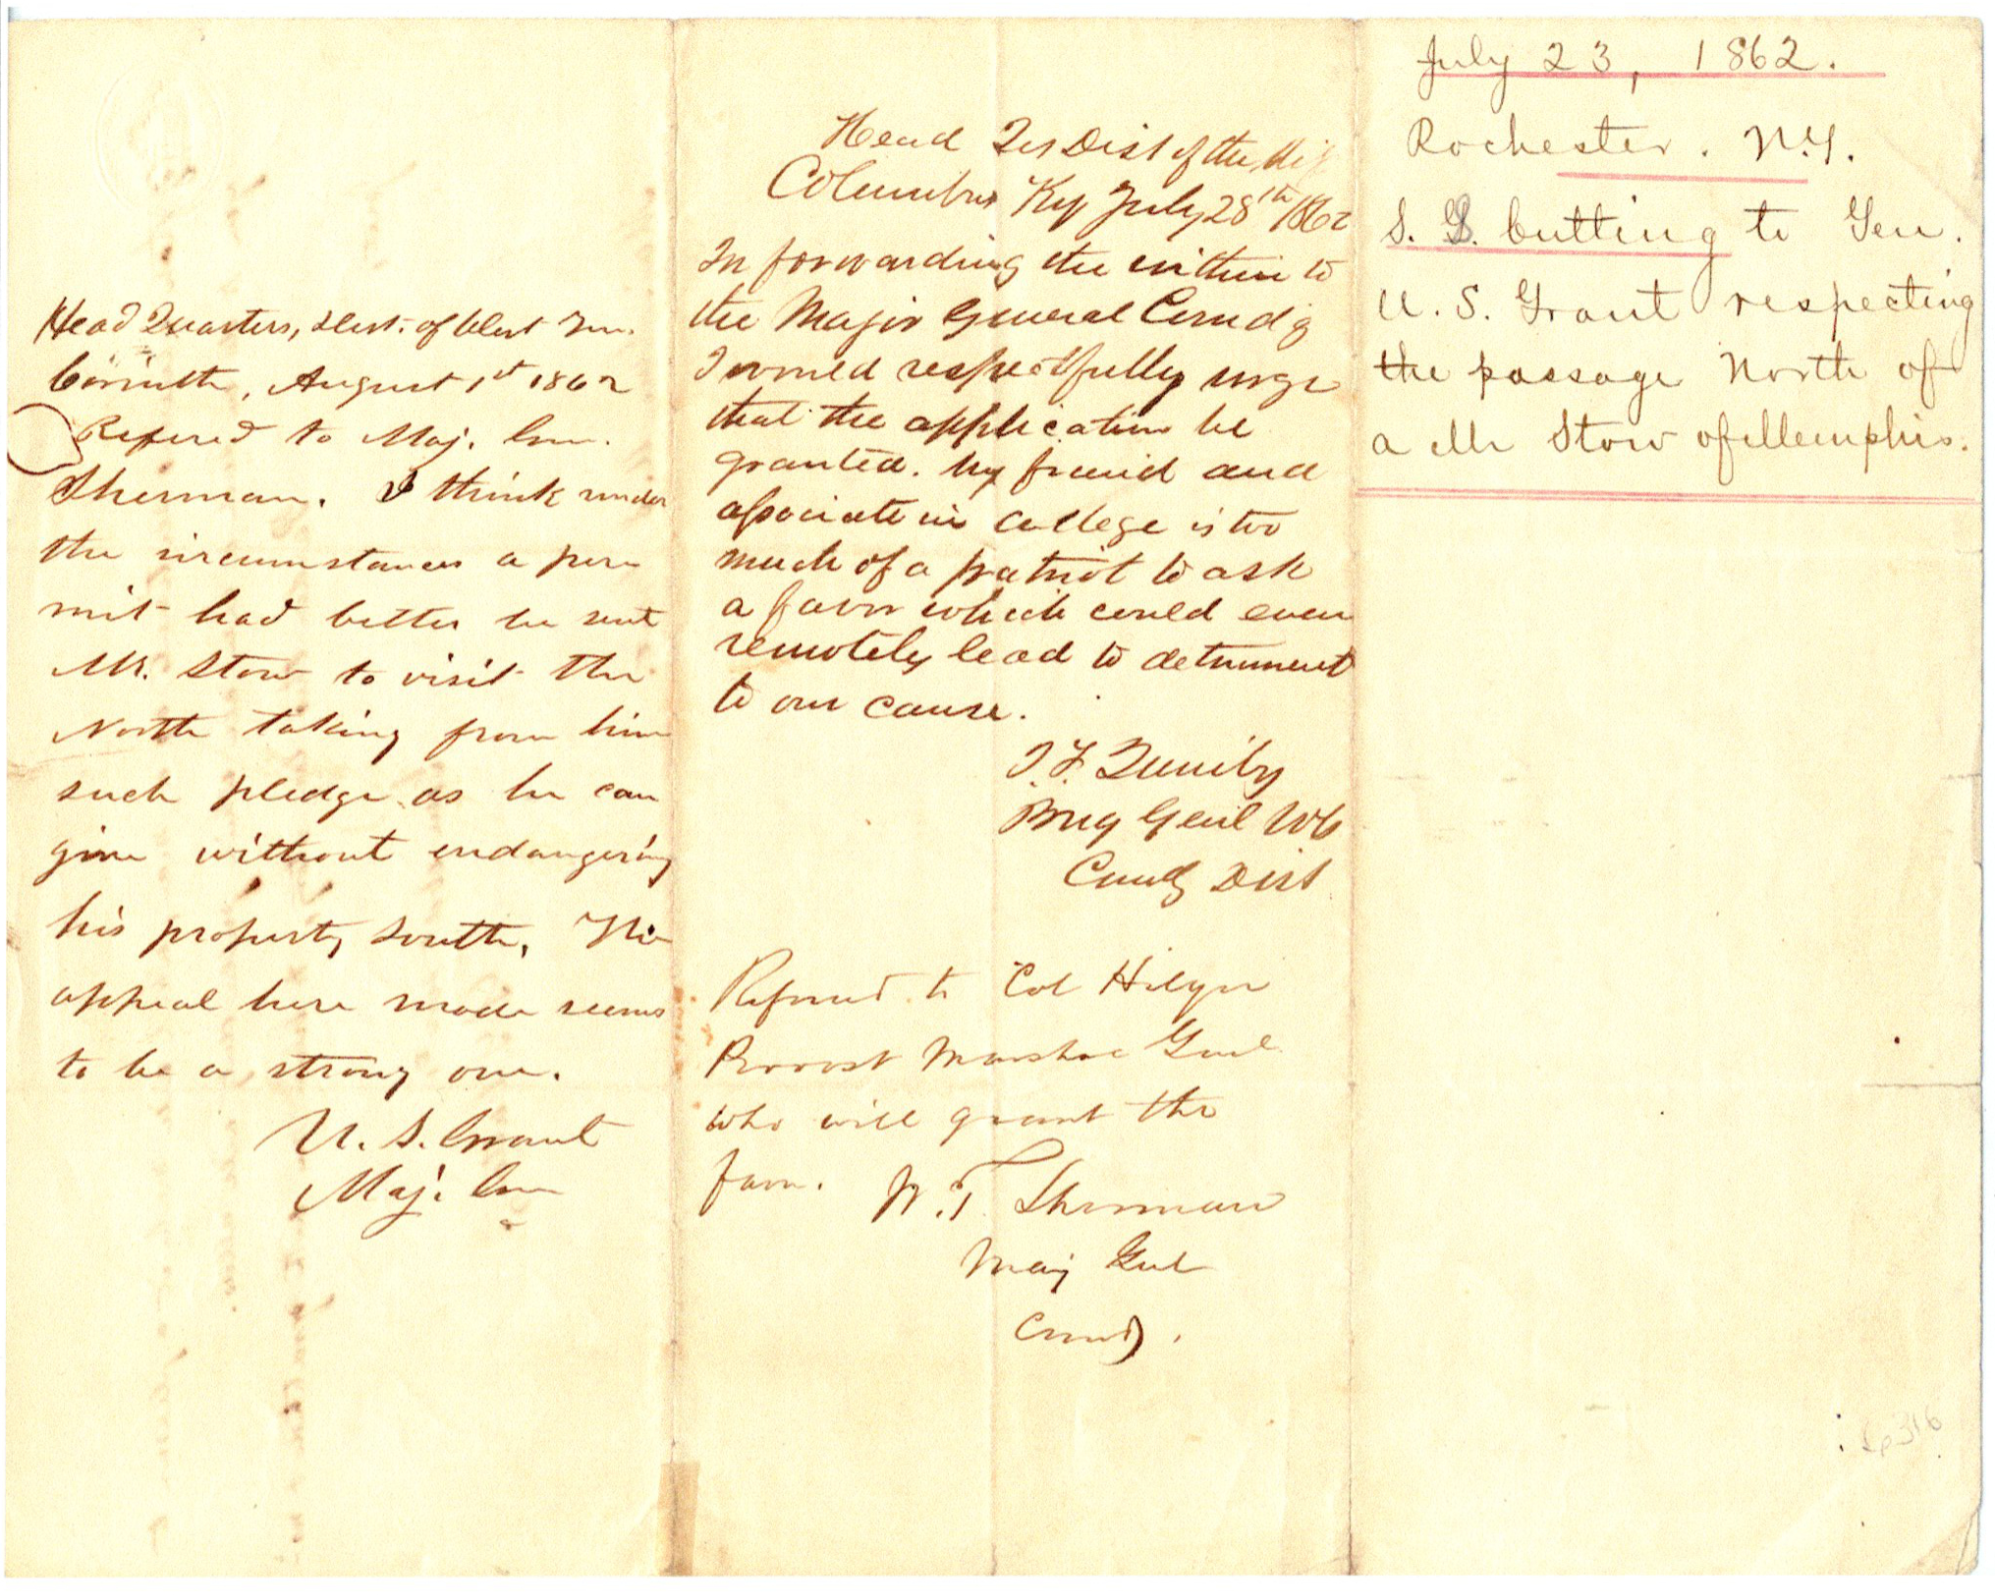 Head Quarters, Dist. of West Ten.
Corinth, August 1st 1862
Refered to Maj. Gen.
Sherman. I think under
the circumstances a per
mit had better be sent
Mr. Stow to visit the
North taking from him
such pledge as he can
give without endangering
his property South. The
appeal here made seems
to be a strong one.
U. S. Grant
Maj. Gen
Head Qrs Dist of the Mis
Columbus Ky July 28th 1862
In forwarding the within to
the Major General Comdg
I would respectfully urge
that the application be
granted. My friend and
associate in College is too
much of a patriot to ask
a favor which could even
remotely lead to detriment
to our cause.
I. F. Quinby
Brig Genl Vols
Comdg Dist
Referred to Col Hilyer
Provost Marshal Genl
who will grant the
favor.
W. T. Sherman
Maj Genl
Comdg.
July 23, 1862.
Rochester. N.Y.
S. Cutting to Gen.
U. S. Grant respecting
the passage North of
a Mr Stow of Memphis.
316